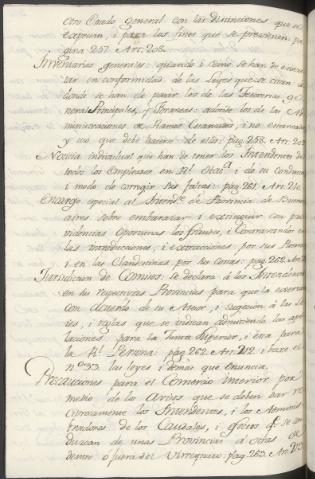 con Caudo general con las distinciones que se
expresan, i para los fines que se previenen pa
gina 257. Art. 208.
Inventarios generales: quando i como se han de execu
tar en conformidad de las Leyes que se citan
donde se han de parar los de las Tesorerias, ge
neral Principales, y Foraneas: adonde los de las Ad
ministraciones de Ramos Arrendados, i no arrendados
y uso que debe hacerse de ellos: pag. 258. Art. 209
Noticia individual que han de tener los Intendentes de
todos los Empleados en Rl. Hazda. i de su conducta
i modo de corregir sus faltas: pag. 261. Art. 210.
Encargo especial al Intend.te de Provincia de Buenos
aires sobre embarazar i extinguir con pro
videncias oportunas los fraudes, i Contravandos en
las introducciones, i extracciones por sus Puertos
i en las Clandestinas por sus Costas: pag. 262. Art. 211
Jurisdicion de Comisos: se declara á los Intendentes
en sus respectivas Provincias para que la exerzan
con acuerdo de su Asesor, i sugecion á las Le
ies, i reglas que se indican admitiendo las ape
laciones para la Junta Superior, i esta para
la Rl. Persona: pag. 262. Art. 212. i baxo el
nº 33. las leyes i demas que enuncia.
Precauciones para el Comercio interior por
medio de los avisos que se deben dar re
ciprocamente los Intendentes, i los Adminis
tradores de los Caudales, i efectos qe. se con
duzcan de unas Provincias á otras de
dentro ó fuera del Virreynato: pag. 263. Art. 213